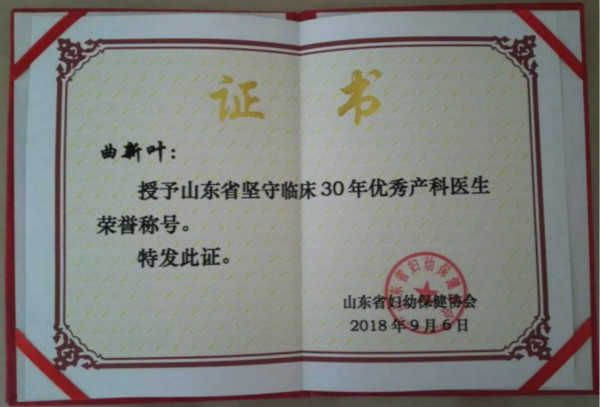 证书
曲新叶：
授予山东省坚守临床30年优秀产科医生
荣誉称号。
特发此证。
山东省妇幼保健协会
山东省妇幼保健协会
2018年9月6日